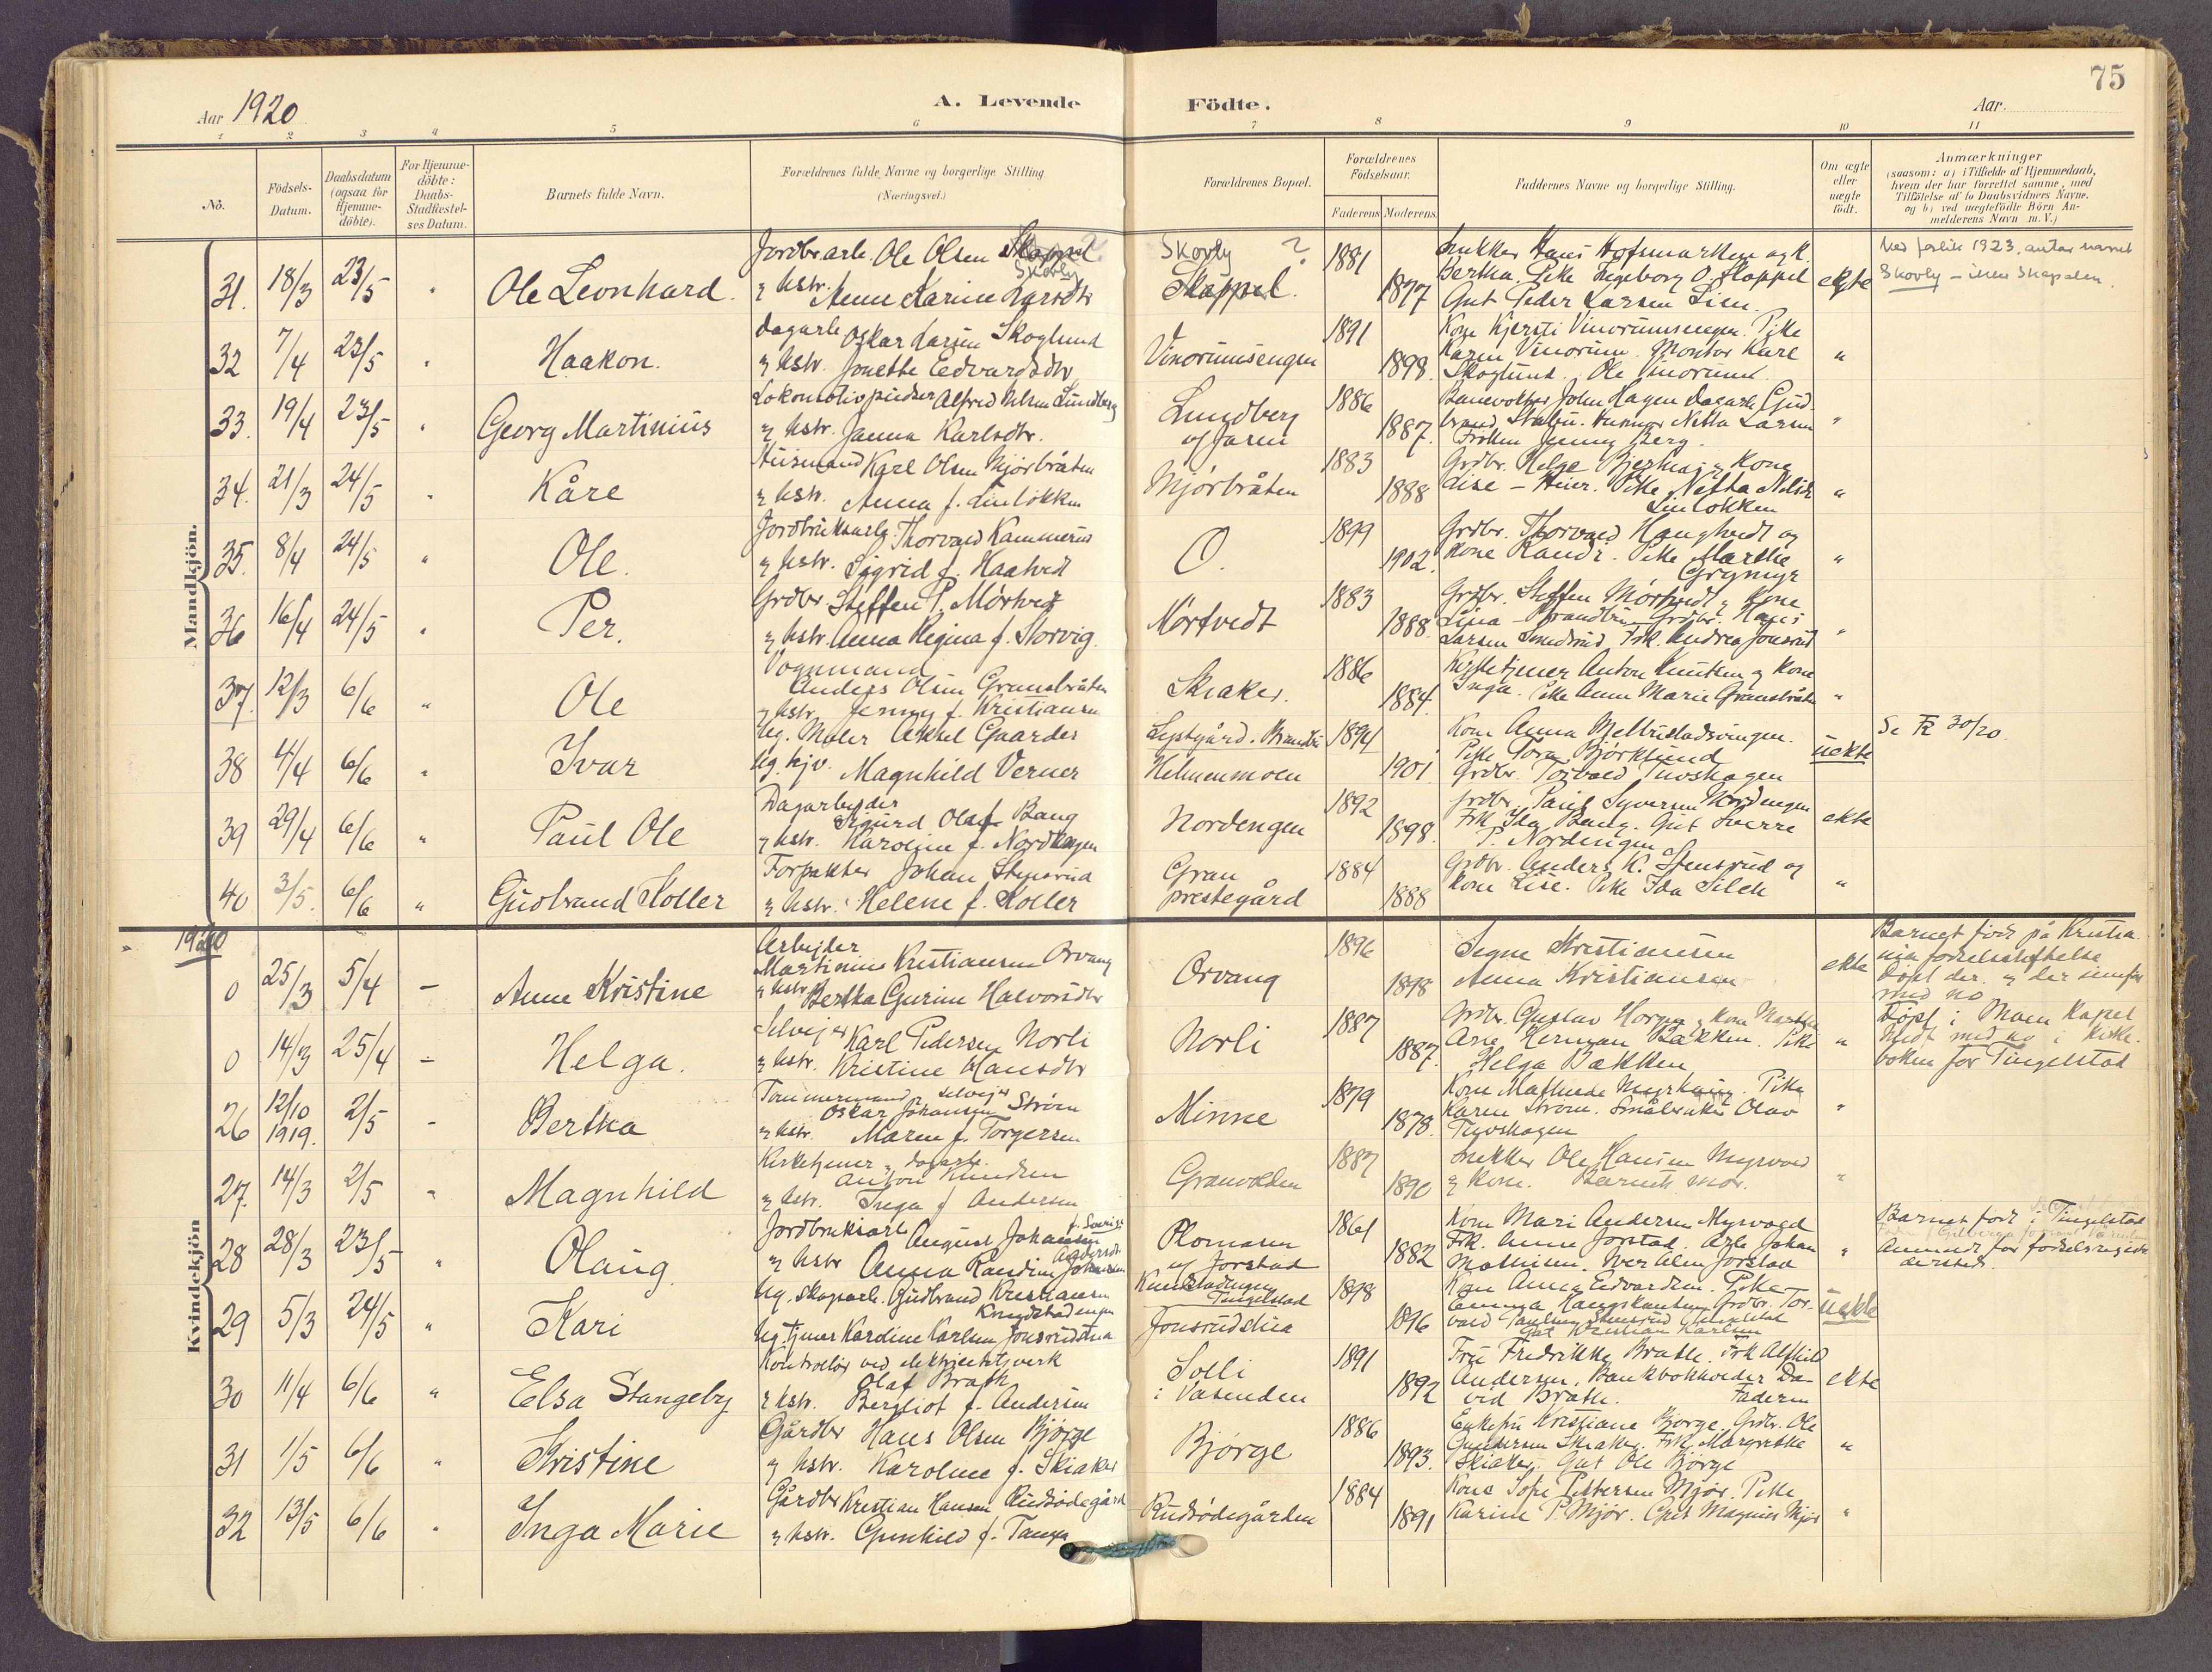 75
Aar 1920
A. Levende
Födte.
Aar.
1 2 3 4 5 6 7 8 9 10 11
No.
Födsels-
Datum.
Daabsdatum
(ogsaa for
Hjemme-
döbte).
For Hjemme-
döbte:
Daabs-
Stadfæstel-
ses Datum.
Barnets fulde Navn.
Forældrenes fulde Navne og borgerlige Stilling
(Næringsvei.)
Forældrenes Bopæl.
Forældrenes
Födselsaar.
Faderens Moderens
Faddernes Navne og borgerlige Stilling.
Om ægte
eller
uægte
födt.
Anmærkninger
(saasom: a) i Tilfælde af Hjemmedaab,
hvem der har forrettet samme, med
Tilföielse af to Daabsvidners Navne.
og b) ved uægtefödte Börn An-
melderens Navn m. V.)
Mandkjön.
31. 18/3 23/5 " Ole Leonhard.
Jordbr.arb. Ole Olsen Skappel
Skovly
& hstr. Anne Karine Larsdtr
Skovly ?
Skappel.
1881
1877
Snekker Hans Hofsmarken og k.
Bertha. Pike Ingeborg O. Skappel
Gut Peder Larsen Lien
ekte
1923, antar navnet
Skovly – ikke Skapelen.
32 7/4 23/5 " Haakon.
Dagarb Oskar Larsen Skoglund
& hstr. Jonette Edvardsdtr
Vinorumsengen
1891
1898.
Kone Kjersti Vinorumsengen. Pike
Karen Vinorum. Montør Kare
Skoglund. Ole Vinorum.
"
33. 19/4 23/5 " Georg Martinius
Lokomotivpudser Alfred Nelsen Lundberg
& hstr. Janna Karlsdtr.
Lundberg
af Jaren
1886
1887.
Banevokter John Hagen Dagarb Gud-
brand. Netta Larsen
Frøken Jenny Berg.
"
34. 21/3 24/5 " Kåre
Husmand Karl Olsen Mjørbråten
& hstr. Anna f. Linløkken
Mjørbråten
1883
1888
Grdbr. Helge Bjerke & Kone
Lise – Pike Netta Nilsdr
Linløkken
"
35. 8/4 24/5 " Ole.
Jordbruksarb. Thorvald Kammerud
& hstr. Sigrid f. Haatvedt
O.
1899
1902.
Grdbr. Thorvald Haugtvedt og
Kone Randi. Pike Marthe
Grymyr
"
36 16/4 24/5 " Per.
Grdbr. Steffen P. Mörtvedt
& hstr. Anna Regina f. Storvig.
Mörtvedt
1883
1888.
Grdbr. Steffen Mörtvedt & Kone
Lina – Brandbu Grdbr. Hans
Larsen Smedsrud Frk. Andrea Jonsrud
"
37. 12/3 6/6 " Ole
Vognmand
Anders Olsen Granebråten
& hstr. Jenny f. Kristiansen
Skiaker.
1886
1884.
Kirketjener Anton Knutsen og kone
Inga. Pike Anne Marie Granebråten
"
38 4/4 6/6 " Ivar
Ug. Maler Aksel Gaarder
Ug. tjv. Magnhild Verner
Lystgård. Brandbu
Helmenmoen
1894
1901
Kone Anna Melbustadsvingen.
Pike Tora Bjørklund
Grdbr. Torvald Tuvshagen
uekte
Se FR 30/20.
39 29/4 6/6 " Paul Ole
Dagarbeider
Sigurd Olaf Bang
& hstr. Karoline f. Nordengen
Nordengen
1892
1898.
Grdbr. Paul Syversen Nordengen
Frk Ida Bang. Gut Sverre
P. Nordengen
ekte
40 3/5. 6/6 " Gudbrand Koller
Forpakter Johan Stensrud
& hstr. Helene f. Koller
Gran
prestegård
1884
1888
Grdbr. Anders K. Stensrud og
Kone Lise. Pike Ida
"
1920
Kvindekjön
0 25/3 5/4 – Anne Kristine
Arbejder
Martinius Kristiansen Orvang
& hstr Bertha Gurine Halvorsdtr
Orvang
1896
1898
Signe Kristiansen
Anna Kristiansen
ekte
Barnet født på Kristia-
nia fødselsstiftelse
Døpt der & der innført
med no
0 14/3 25/4 – Helga.
Selvejer Karl Pedersen Norli
& hstr. Kristine Hansdtr
Norli
1887
1887.
Grdbr. Gustav Horgen & Kone Marthe
Arne Herman Bakken. Pike
Helga Bakken
"
Døpt i Moen Kapel
Indt. med no i Kirke-
boken for Tingelstad
26 12/10 1919. 2/5 – Bertha
Tømmermand & selvejer
Oskar Johansen Strøm
& hstr. Maren f. Torgersen
Minne
1879
1878.
Kone Mathilde Myrhaug. Pike
Karen Strøm. Småbruker Olav
Tuvshagen
"
27. 14/3 2/5 " Magnhild
Kirketjener & dagarb.
Anton Knudsen
& hstr. Inga f Andersen
Granvolden
1887
1890
Snekker Ole Hansen Myrvold
& Kone. Barnets mor.
"
28 28/3 23/5 " Olaug.
Jordbruksarb August Johansen f. Sverige
& hstr Anna Randine Johansen Andersdtr
Plomasen
af Jorstad
1861
1882
Kone Mari Andersen Myrvold
Frk. Anna Jorstad. Arb Johan
Mathisen. Iver Alm Jorstad
"
Barnet født i Tingelstad
Anmeldt for fødselsregister
dersteds.
29 5/3 24/5 " Kari
Ug. skogsarb. Gudbrand Kristiansen
Knudstadengen
Ug. tjener Kardine Karlsen Jonsrudstua
Knudstadengen
Tingelstad
Jonsrudstua
1898
1896
Kone Anna Edvardsen. Pike
Emma Haugskantengen Grdbr. Tor-
vald Paulsen Stensrud Tingelstad
Gut Kristian Karlsen
uekte
30 11/4 6/6 " Elsa Stangeby
Kontrollør ved elektricitetsverk
Olaf Brath
& hstr. Bergliot f. Andersen
Solli
i Vasenden
1891
1892
Fru Fredrikke Brath. Frk Alfhild
Andersen. Bankbokholder Da-
vid Brath. Faderen
ekte
31 1/5 6/6 " Kristine
Gårdbr Hans Olsen Bjørge
& hstr. Karoline f. Skiaker
Bjørge
1886
1893.
Enkefru Kristiane Bjørge. Grdbr. Ole
Gundersen Skiaker. Frk. Margrethe
Skiaker. Gut Ole Bjørge
"
32 13/5 6/6 " Inga Marie
Gårdbr Kristian Hansen Rudsødegård
& hstr. Gunhild f. Tangen
Rudsødegården
1884
1891
Kone Sofie Pettersen Mjør. Pike
Karine P. Mjør. Gut Magnus Mjør
"